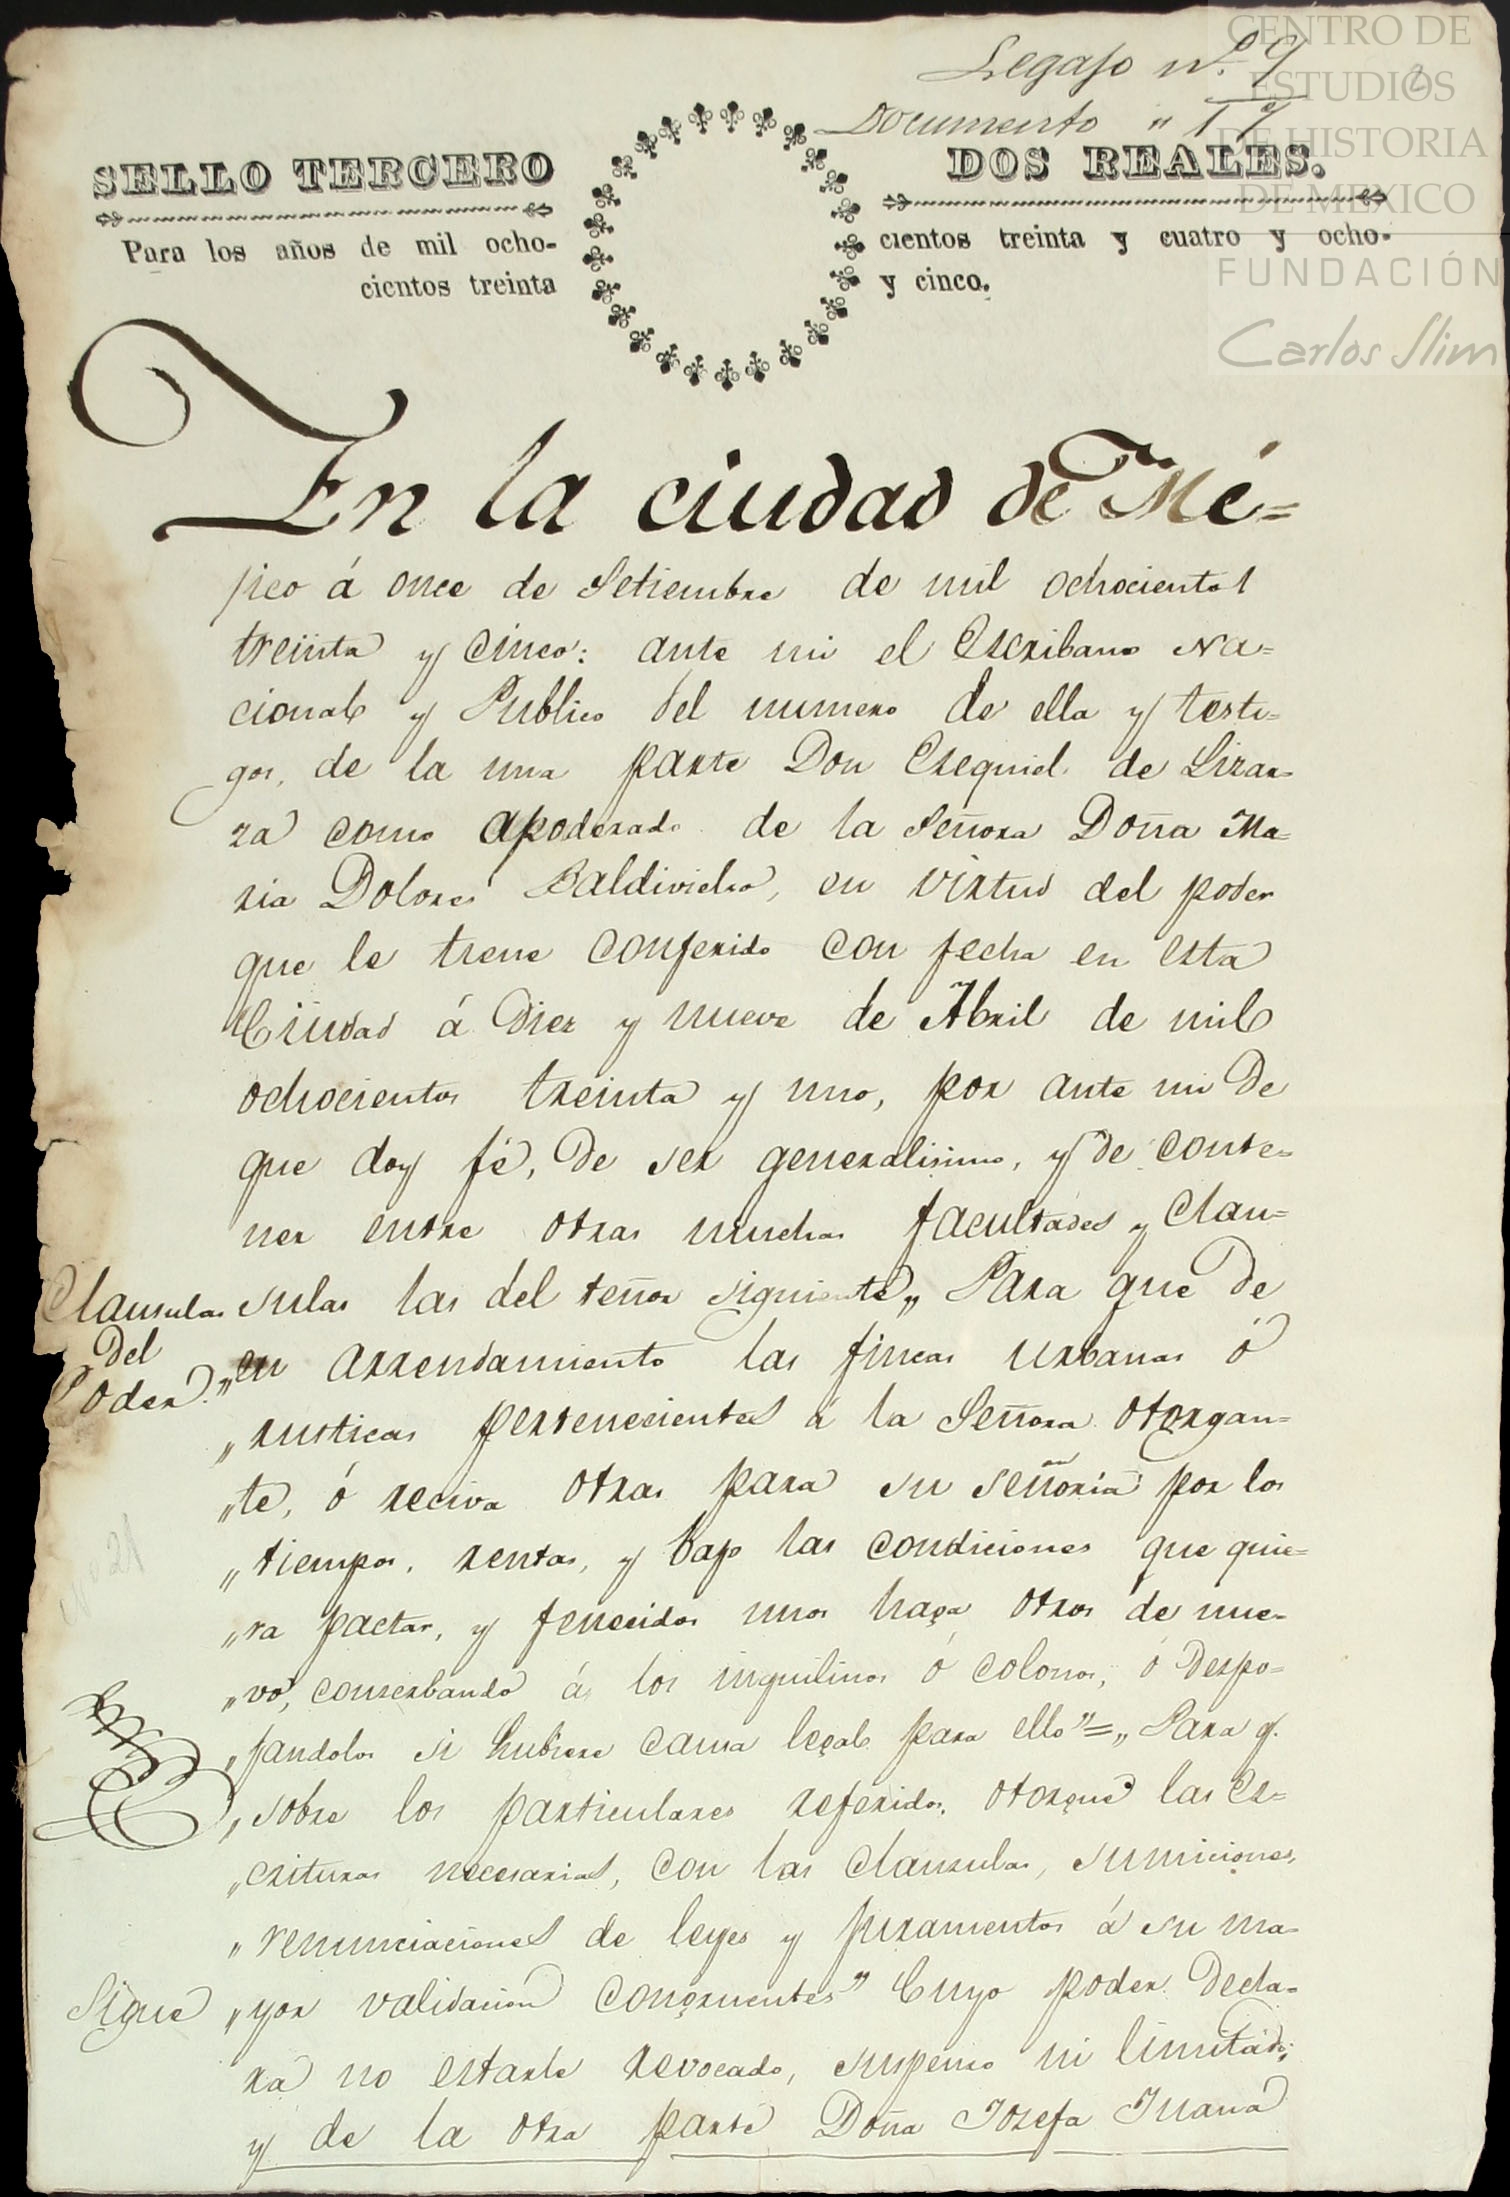 Legajo n.º 9
2
Documento " 19
CENTRO DE
ESTUDIOS
DE HISTORIA
DE MEXICO
FUNDACIÓN
Carlos Slim
SELLO TERCERO
Para los años de mil ocho-
cientos treinta
DOS REALES.
cientos treinta y cuatro y ocho-
y cinco.
En la ciudad de Mé=
jico á once de Setiembre de mil ochocientos
treinta y cinco: ante mi el Escribano Na=
cional y Publico del numero de ella y testi=
gos, de la una parte Don Esequiel de Lizar=
za como apoderado de la Señora Doña Ma=
ria Dolores Baldivielso, en virtud del poder
que le tiene conferido con fecha en esta
Ciudad á diez y nueve de Abril de mil
ochocientos treinta y uno, por ante mi de
que doy fé, de ser generalisimo, y de conte=
ner entre otras muchas facultades y clau=
Clausulas
del
Poder.
sulas las del tenor siguiente „ Para que de
„en arrendamiento las fincas urbanas ó
„rusticas pertenecientes á la Señora otorgan=
„te, ó reciva otras para su señoria por los
„tiempos, rentas, y bajo las condiciones que quie=
„ra pactar, y fenecidos unos haga otros de nue=
„vo, conserbando á los inquilinos ó colonos, ó despo=
„jandolos si hubiere causa legal para ello"=„ Para q.
„sobre los particulares referidos, otorgue las es=
„crituras necesarias, con las clausulas, sumiciones,
„renunciaciones de leyes y juramentos á su ma=
Sigue
„yor validacion congruentes" Cuyo poder decla=
ra no estarle revocado, suspenso ni limitado;
y de la otra parte Doña Josefa Juana